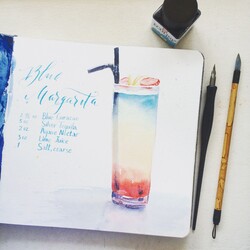 Blue
Margarita
Blue Curacao
Silver Tequila
Agave Nectar
Lime Juice
1 Salt, coarse